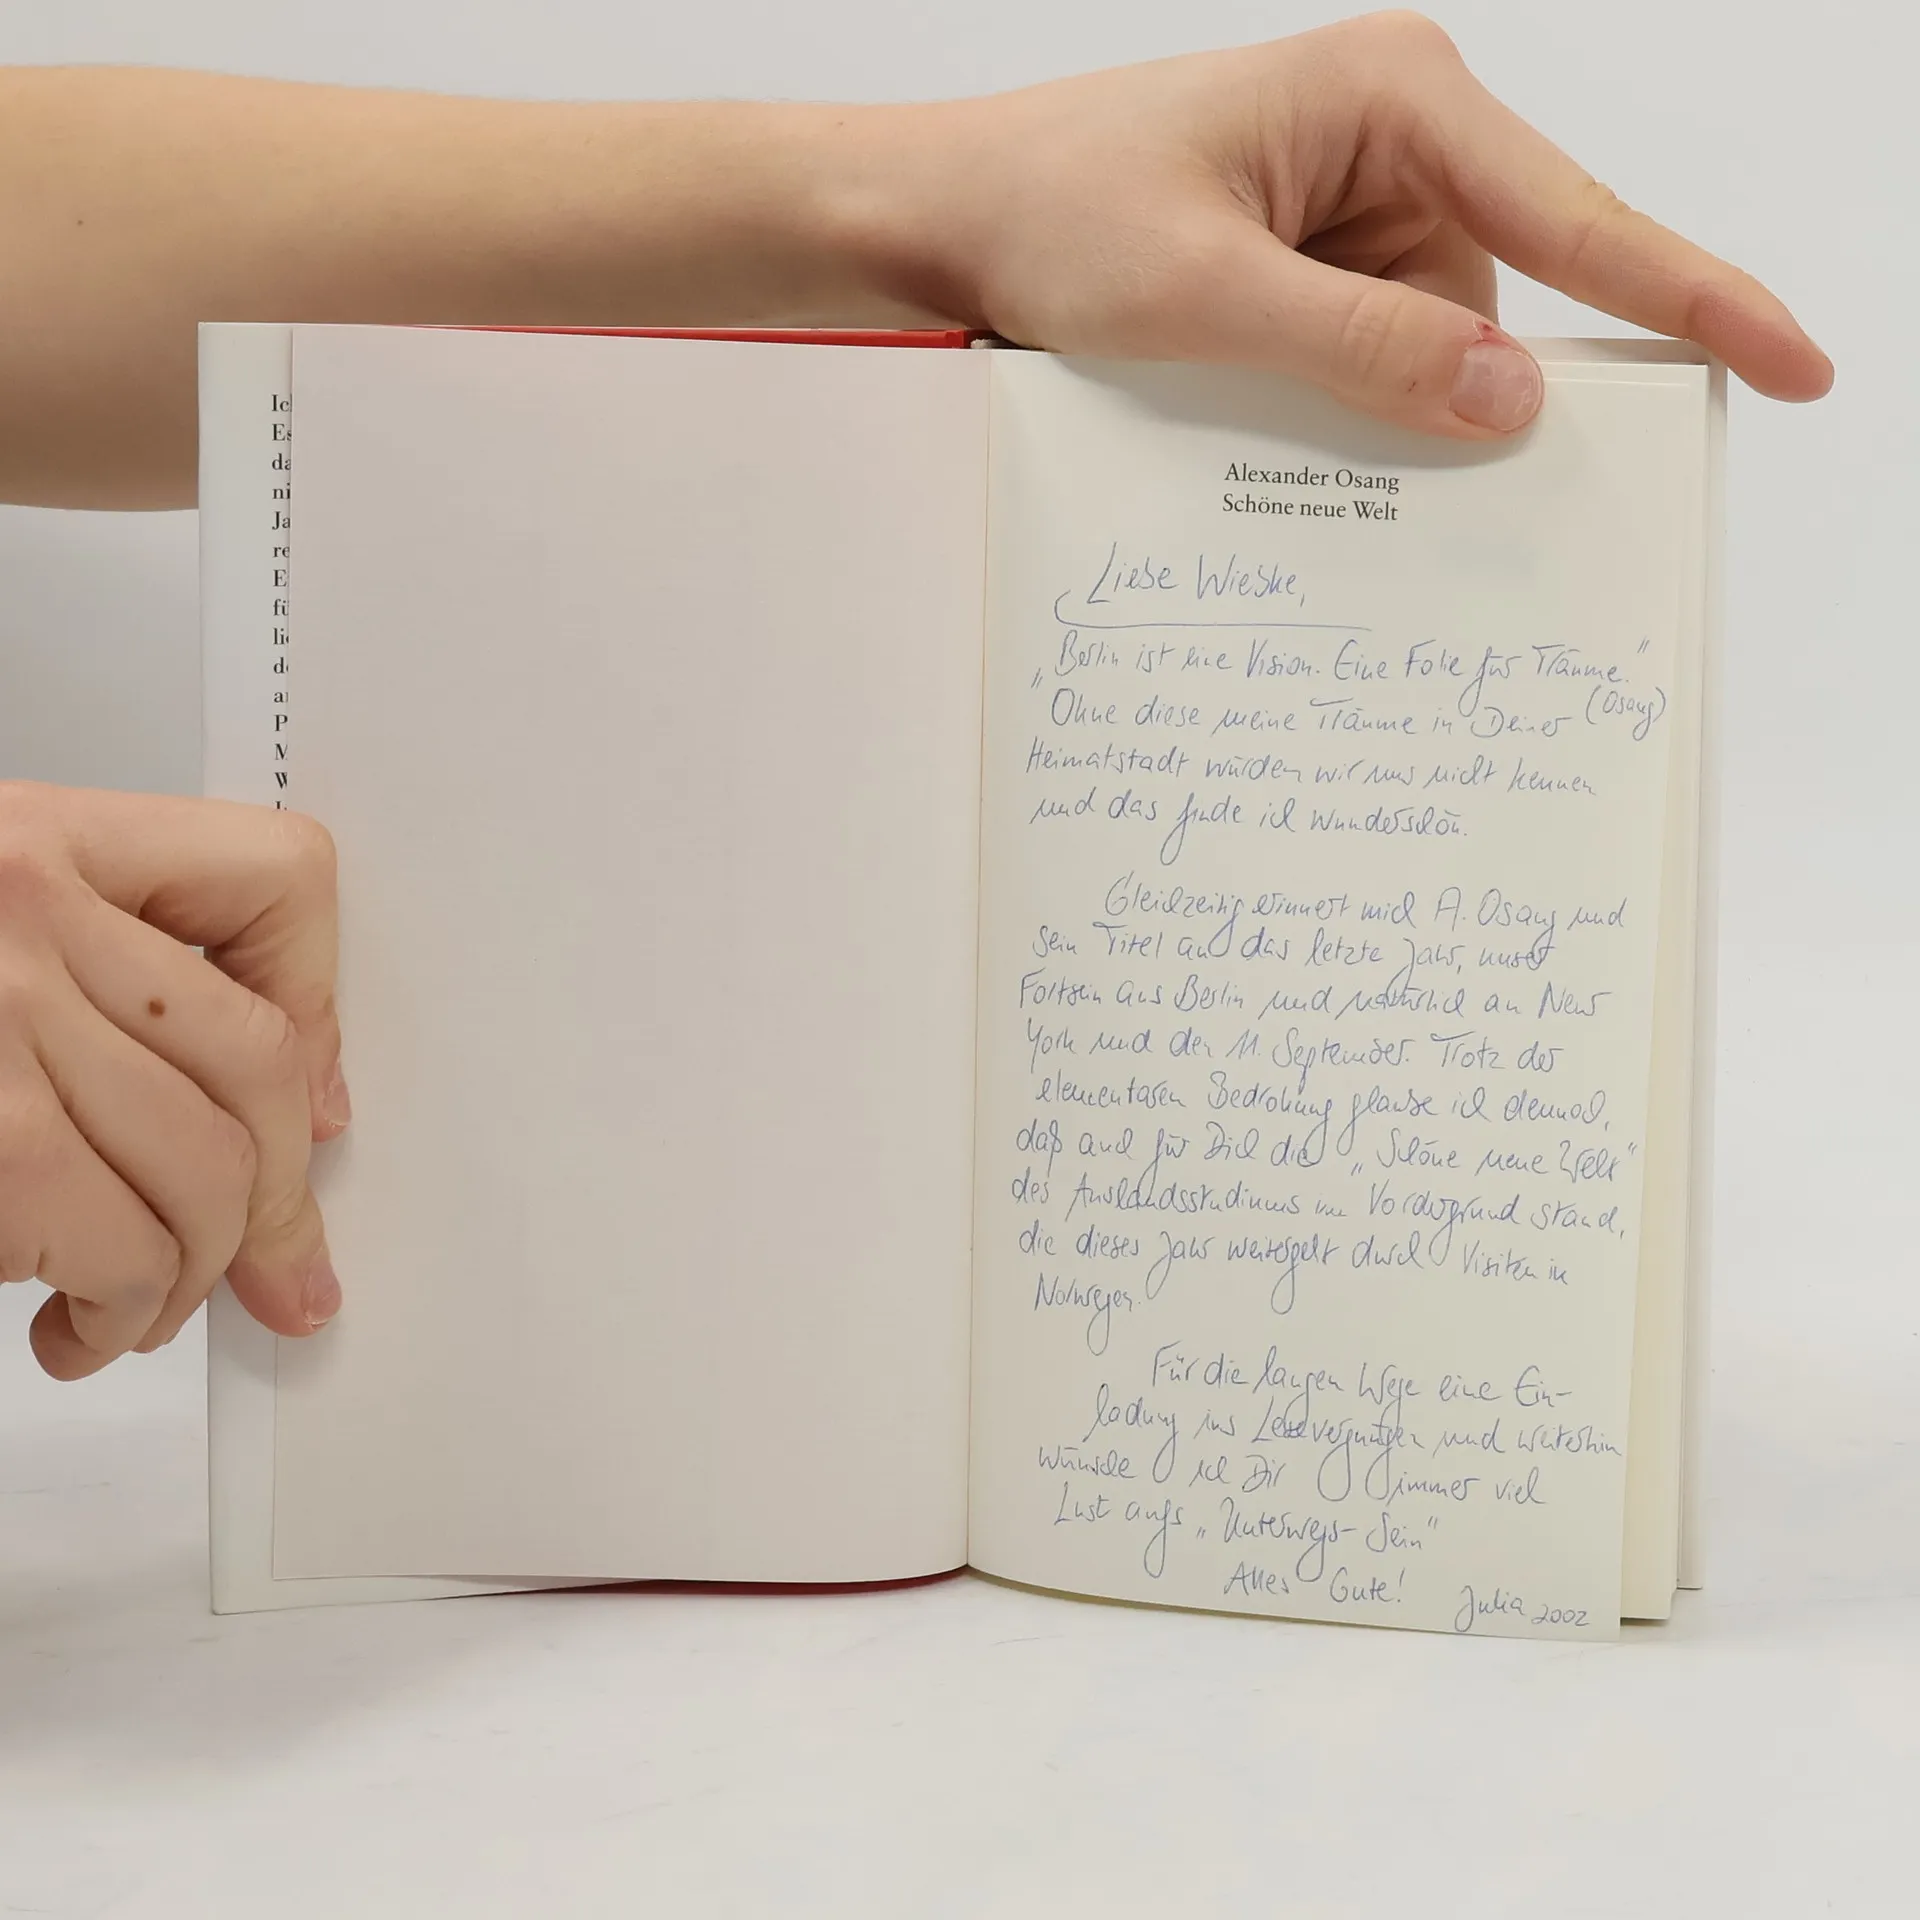 Icl
Es
da
ni
Ja
re
E
fü
lie
de
an
P
M
W
Alexander Osang
Schöne neue Welt
Liebe Wiebke,
„Berlin ist eine Vision. Eine Folie für Träume."
(Osang)
Ohne diese meine Träume in Deiner
Heimatstadt würden wir uns nicht kennen
und das finde ich wunderschön.
Gleichzeitig erinnert mich A. Osang und
sein Titel an das letzte Jahr, unser
Fortsein aus Berlin und natürlich an New
York und den 11. September. Trotz der
elementaren Bedrohung glaube ich dennoch,
daß auch für Dich die „Schöne neue Welt"
des Auslandsstudiums im Vordergrund stand,
die dieses Jahr weitergeht durch Visiten in
Norwegen.
Für die langen Wege eine Ein-
ladung ins Lesevergnügen und weiterhin
wünsche ich Dir immer viel
Lust aufs „Unterwegs-Sein"
Alles Gute!
Julia 2002